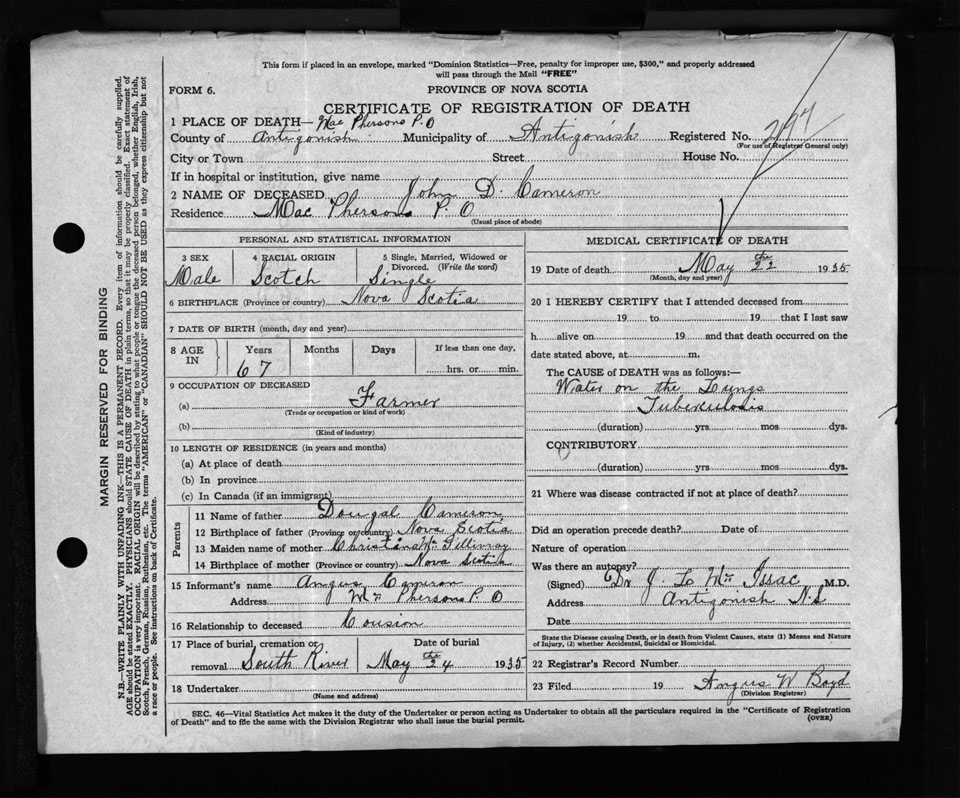 This form if placed in an envelope, marked "Dominion Statistics—Free, penalty for improper use, $300," and properly addressed
will pass through the Mail "FREE"
FORM 6. PROVINCE OF NOVA SCOTIA
CERTIFICATE OF REGISTRATION OF DEATH
1 PLACE OF DEATH— Mac Phersons P. O
County of Antigonish Municipality of Antigonish Registered No.
(For use of Registrar General only)
City or Town Street House No.
If in hospital or institution, give name
2 NAME OF DECEASED John D. Cameron
Residence Mac Phersons P. O
(Usual place of abode)
PERSONAL AND STATISTICAL INFORMATION
3 SEX 4 RACIAL ORIGIN 5 Single, Married, Widowed or
Divorced. (Write the word)
Male Scotch Single
6 BIRTHPLACE (Province or country) Nova Scotia
7 DATE OF BIRTH (month, day and year)
8 AGE IN Years Months Days If less than one day,
67 hrs. or min.
9 OCCUPATION OF DECEASED
(a) Farmer
(Trade or occupation or kind of work)
(b)
(Kind of industry)
10 LENGTH OF RESIDENCE (in years and months)
(a) At place of death
(b) In province
(c) In Canada (if an immigrant)
Parents
11 Name of father Dougal Cameron
12 Birthplace of father (Province or country) Nova Scotia
13 Maiden name of mother Christina Mc Gillivray
14 Birthplace of mother (Province or country) Nova Scotia
15 Informant's name Angus Cameron
Address Mc Phersons P. O
16 Relationship to deceased Cousion
17 Place of burial, cremation or Date of burial
removal South River May the 24 1935
18 Undertaker
(Name and address)
MEDICAL CERTIFICATE OF DEATH
19 Date of death May the 22 1935
(Month, day and year)
20 I HEREBY CERTIFY that I attended deceased from
19 to 19 that I last saw
h alive on 19 and that death occurred on the
date stated above, at m.
The CAUSE of DEATH was as follows:—
Water on the Lungs
Tuberkulosis
(duration) yrs. mos. dys.
CONTRIBUTORY
(duration) yrs. mos. dys.
21 Where was disease contracted if not at place of death?
Did an operation precede death? Date of
Nature of operation
Was there an autopsy?
(Signed) Dr J. L Mc Issac M.D.
Address Antigonish N.S
Date
State the Disease causing Death, or in death from Violent Causes, state (1) Means and Nature
of Injury, (2) whether Accidental, Suicidal or Homicidal.
22 Registrar's Record Number
23 Filed 19 Angus W Boyd
(Division Registrar)
SEC. 46—Vital Statistics Act makes it the duty of the Undertaker or person acting as Undertaker to obtain all the particulars required in the "Certificate of Registration
of Death" and to file the same with the Division Registrar who shall issue the burial permit. (OVER)
MARGIN RESERVED FOR BINDING
N.B.—WRITE PLAINLY WITH UNFADING INK—THIS IS A PERMANENT RECORD. Every item of information should be carefully supplied.
AGE should be stated EXACTLY. PHYSICIANS should STATE CAUSE OF DEATH in plain terms, so that it may be properly classified. Exact statement of
OCCUPATION is very important. RACIAL ORIGIN will be described by stating to what people or tongue the deceased person belonged, whether English, Irish,
Scotch, French, German, Russian, Ruthenian, etc. The terms "AMERICAN" or "CANADIAN" SHOULD NOT BE USED as they express citizenship but not
a race or people. See instructions on back of Certificate.